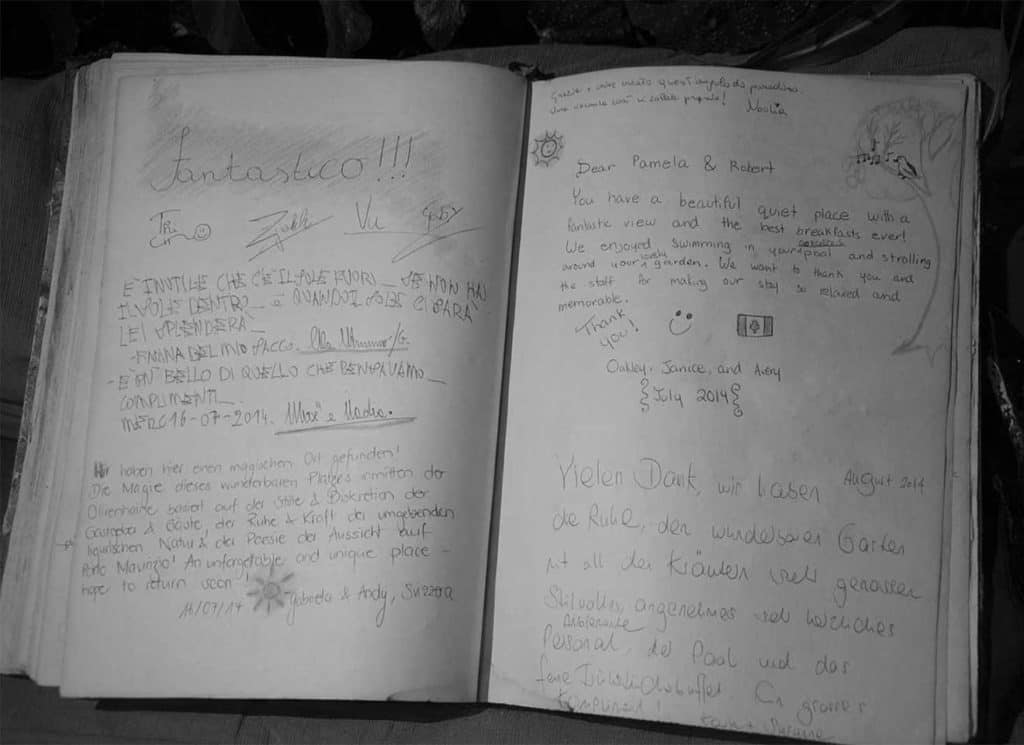 Fantastico!!!
Vu Gaby
È INUTILE CHE C'È IL SOLE FUORI SE NON HAI
IL SOLE DENTRO E QUANDO IL SOLE CI SARÀ
LEI SPLENDERÀ
COMPLIMENTI
MERC 16-07-2014. e Nadia.
Wir haben hier einen magischen Ort gefunden!
Die Magie dieses wunderbaren Platzes inmitten der
Olivenhaine basiert auf der Stille & Diskretion der
Gastgeber & Gäste, der Ruhe & Kraft der umgebenden
ligurischen Natur & der Poesie der Aussicht auf
Porto Maurizio! An unforgetable and unique place -
hope to return soon!
Gabriela & Andy, Svizzera
Grazie quest'angolo di paradiso.
Dear Pamela & Robert
You have a beautiful quiet place with a
fantastic view and the best breakfasts ever!
We enjoyed swimming in your pool and strolling
around your lovely garden. We want to thank you and
the staff for making our stay so relaxed and
memorable.
Thank
you!
Oakley, Janice, and Avery
July 2014
Vielen Dank, wir haben August 2014
die Ruhe, den wunderbaren Garten
mit all den Kräutern sehr genossen
Stilvolles, angenehmes sehr herzliches
Ambiente
Personal, der Pool und das
feine Frühstücksbuffet. Ein grosses
Kompliment!